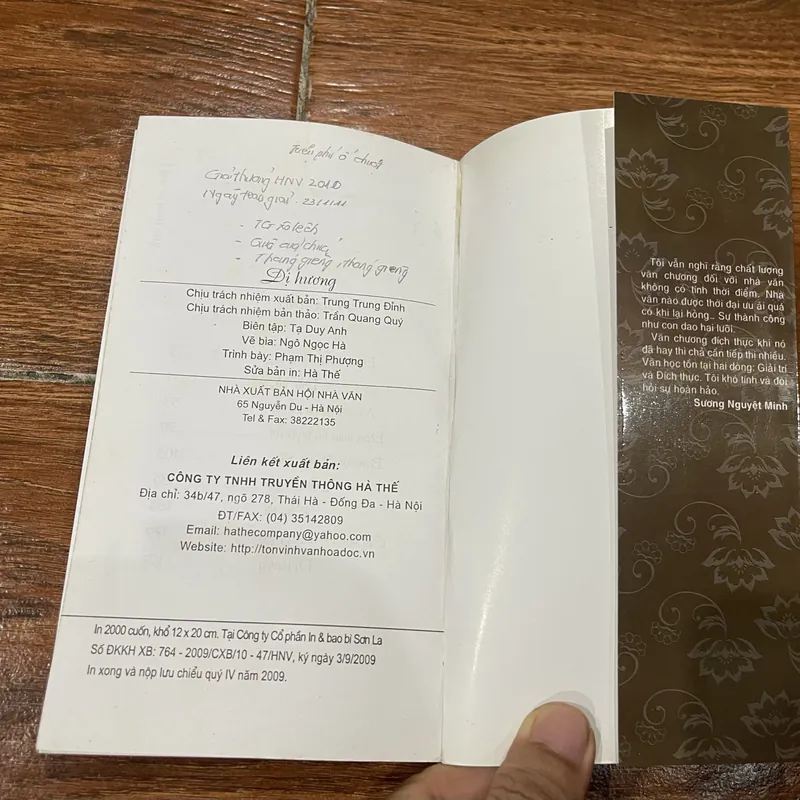 Giải thưởng HNV 2010
Ngày trao giải. 23/1/11
- Quả cuối chuỗi
- Tháng giêng, tháng giêng
Dị hương
Chịu trách nhiệm xuất bản: Trung Trung Đỉnh
Chịu trách nhiệm bản thảo: Trần Quang Quý
Biên tập: Tạ Duy Anh
Vẽ bìa: Ngô Ngọc Hà
Trình bày: Phạm Thị Phượng
Sửa bản in: Hà Thế
NHÀ XUẤT BẢN HỘI NHÀ VĂN
65 Nguyễn Du - Hà Nội
Tel & Fax: 38222135
Liên kết xuất bản:
CÔNG TY TNHH TRUYỀN THÔNG HÀ THẾ
Địa chỉ: 34b/47, ngõ 278, Thái Hà - Đống Đa - Hà Nội
ĐT/FAX: (04) 35142809
Email: hathecompany@yahoo.com
Website: http://tonvinhvanhoadoc.vn
In 2000 cuốn, khổ 12 x 20 cm. Tại Công ty Cổ phần In & bao bì Sơn La
Số ĐKKH XB: 764 - 2009/CXB/10 - 47/HNV, ký ngày 3/9/2009
In xong và nộp lưu chiểu quý IV năm 2009.
Tôi vẫn nghĩ rằng chất lượng
văn chương đối với nhà văn
không có tính thời điểm. Nhà
văn nào được thời đại ưu ái quá
có khi lại hỏng.. Sự thành công
như con dao hai lưỡi.
Văn chương đích thực khi nó
đã hay thì chả cần tiếp thị nhiều.
Văn học tồn tại hai dòng: Giải trí
và Đích thực. Tôi khó tính và đòi
hỏi sự hoàn hảo.
Sương Nguyệt Minh